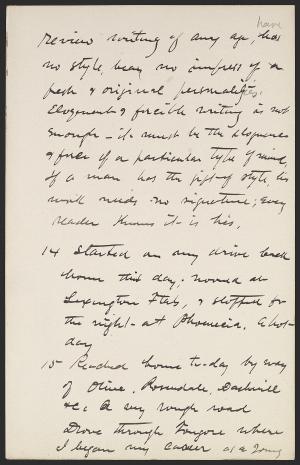 have
review writing of any age, has
no style, bears no impress of a
fresh & original personalities.
Eloquent & forcible writing is not
enough - it must be the eloquence
& force of a particular type of mind.
If a man has the gift of style, his
work needs no signature; every
reader knows it is his.
14 Started on my drive back
home this day; nooned at
Lexington Flats, & stopped for
the night at Phoenicia. A hot
day
15 Reached home to-day by way
of Olive, Rosendale,
&c. A very rough road
Drove through Tongore where
I began my career as a young